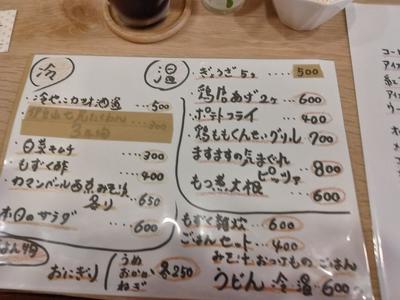 冷
冷やっこカツオ酒盗 500
3点盛 300
白菜キムチ 300
もずく酢 400
カマンベール西京みそ漬
炙り 650
本日のサラダ 600
温
ぎょうざ5ヶ 500
鶏唐あげ2ヶ 600
ポテトフライ 400
鶏ももくんせいグリル 700
ますますの気まぐれ
ピッツァ 800
もつ煮大根 600
もずく雑炊 600
ごはんセット 400
みそ汁 おつけもの ごはん
うどん 冷 温 600
おにぎり
うめ
おかか
ねぎ
各250